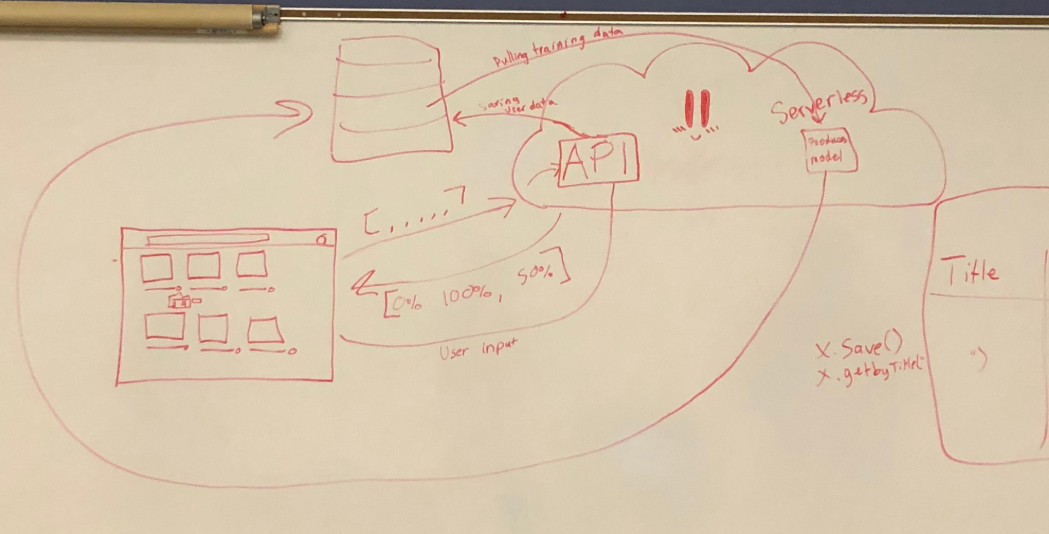 Pulling training data
Saving
user data
Serverless
API
Produces
model
[, . . . . . ]
[0% 100%, 50%]
User input
Title
x.save()
x.getbyTitle